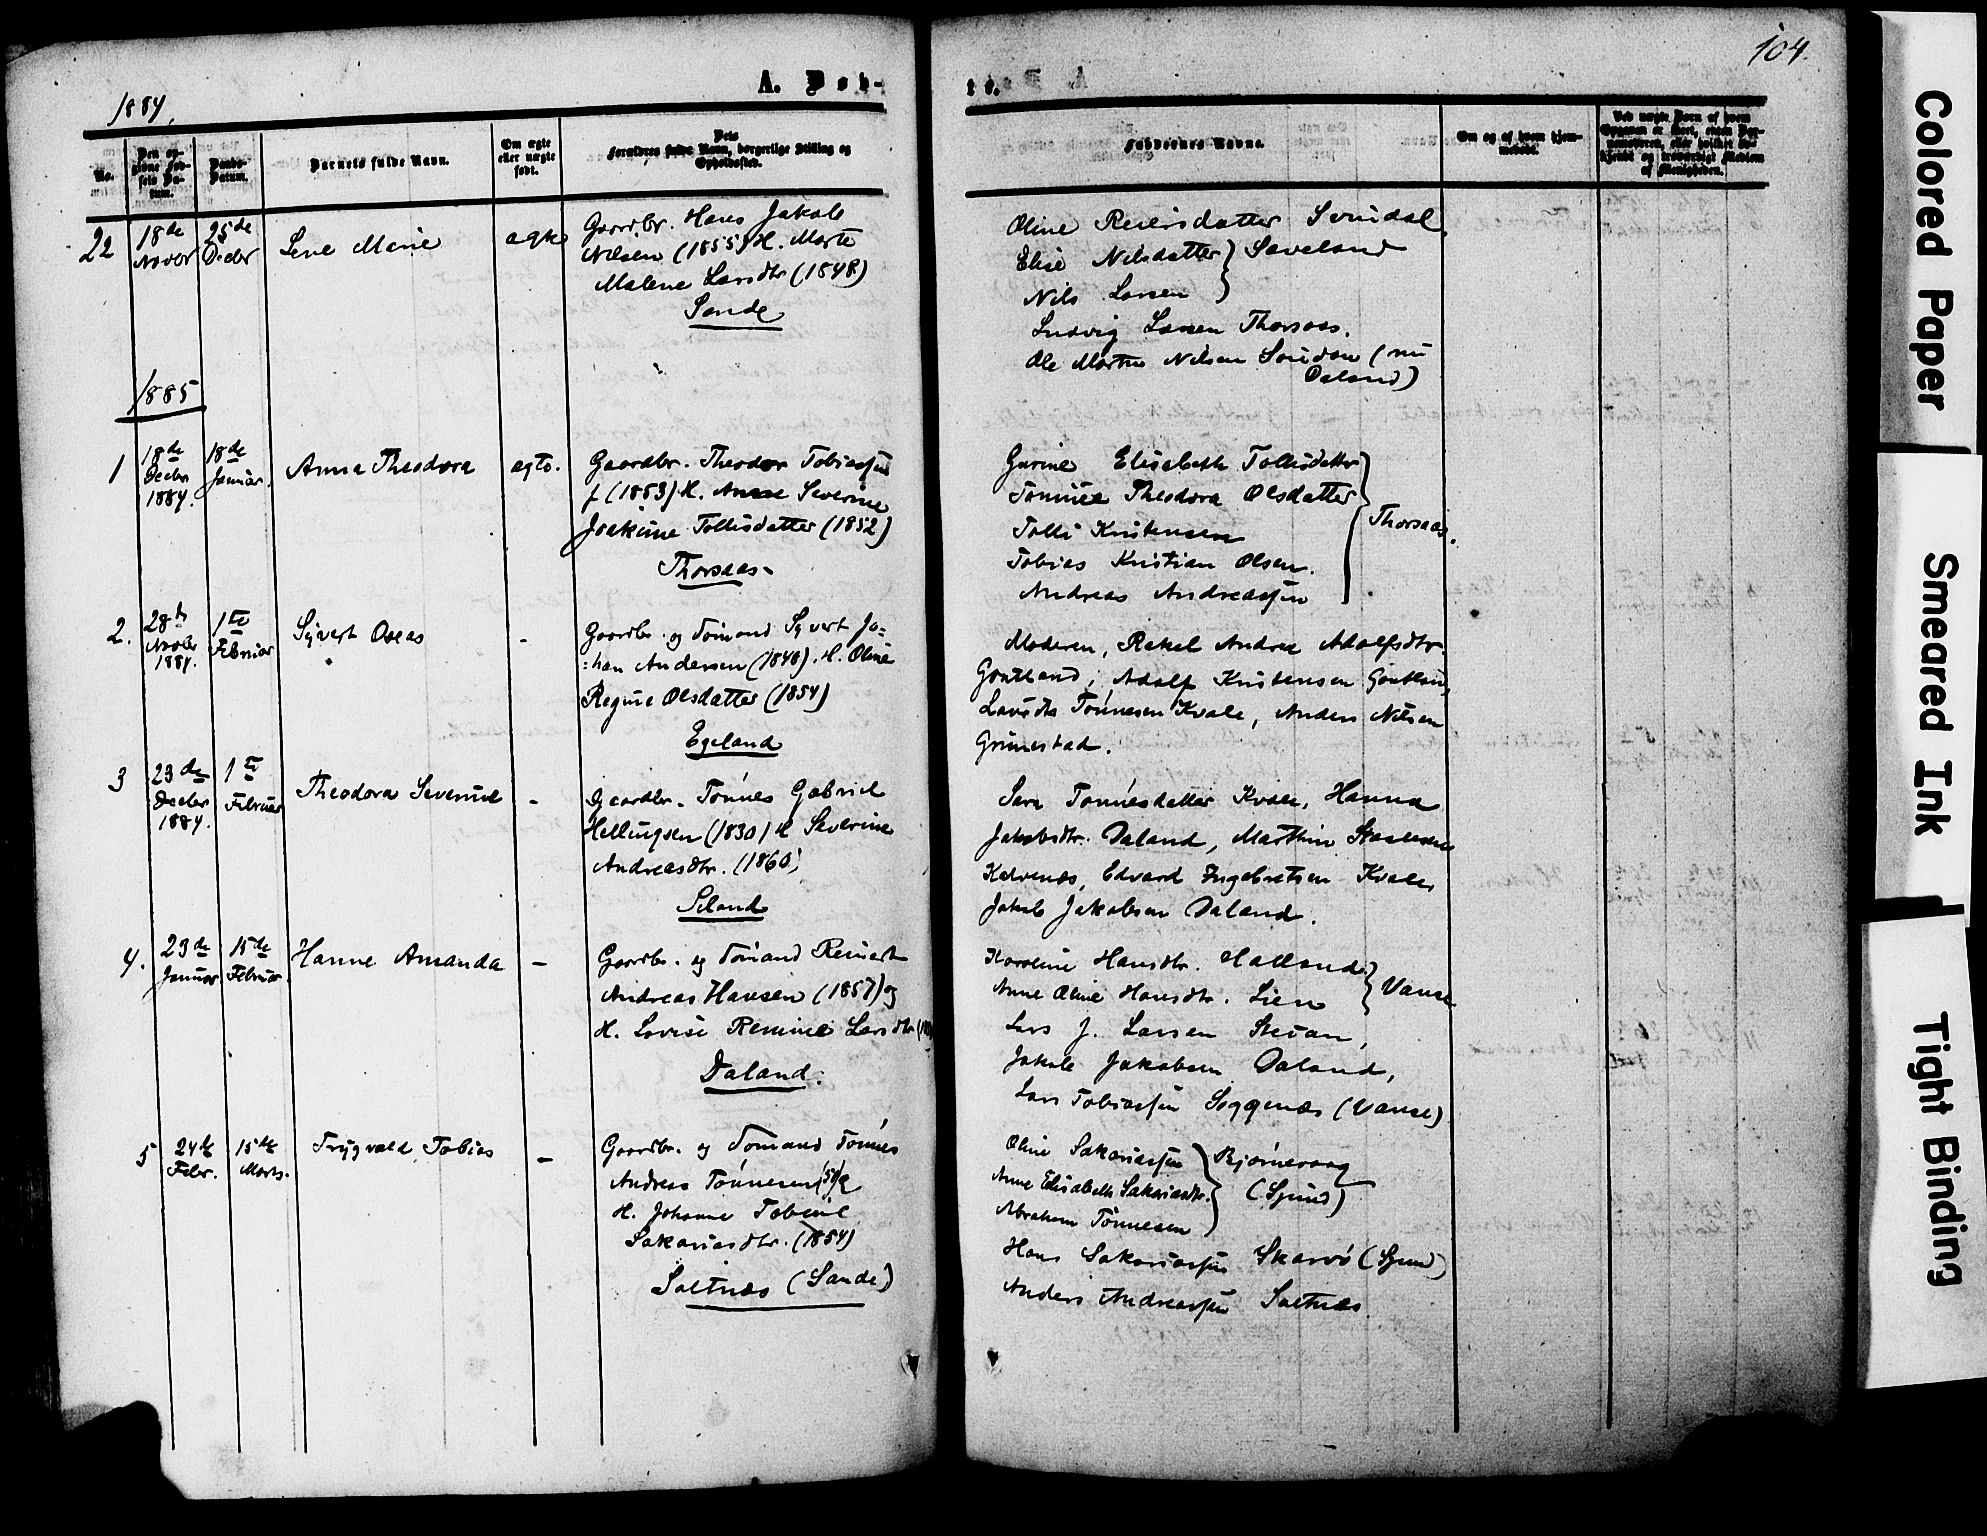 104.
1884.
A. Døb-
te.
No.
Den op-
givne Fød-
sels Da-
tum.
Daabs-
Datum.
Barnets fulde Navn.
Om ægte
eller uægte
født.
Dets
Forældres fulde Navn, borgerlige Stilling og
Opholdssted.
Faddernes Navne.
Om og af hvem hjem-
medøbt.
22
18de
Novbr
25de
Decbr
Lene Marie
ægte
Gaardbr. Hans Jakob
Nilsen (1855) H. Marte
Malene Larsdtr (1848)
Sande
Oline Reiersdatter
Elise Nilsdatter } Saveland
Nils Larsen
Ludvig Larsen Thorsaas.
Ole Martin Nilsen (nu
Daland)
1885
1
18de
Decbr
1884.
18de
Januar.
Anna Theodora
ægte.
Gaardbr. Theodor Tobiassen
(1853) H. Anne Severine
Joakime Tollisdatter (1852)
Thorsaas
Gurine Elisabeth Tollisdatter
Tomine Theodora Olsdatter
Tolli Kristensen
Tobias Kristian Olsen.
Andreas Andreassen
} Thorsaas.
2.
28de
Novbr
1884.
1ste
Februar
Syvert Oseas
-
Gaardbr. og Sømand Syvert Jo-
:han Andersen (1848). H. Oline
Regine Olsdatter (1854)
Egeland
Moderen, Rakel Andrea Adolfsdtr.
Grutland, Adolf Kristensen
Tønnesen Kvale, Anders Nilsen
Grimestad.
3
23de
Decbr
1884.
1ste
Februar
Theodora Severine
-
Gaardbr. Tønnes Gabriel
Hellingsen (1830) H Severine
Andreasdtr. (1860)
Seland
Sara Tønnesdatter Kvale, Hanna
Jakobsdtr. Daland, Marthin
Kalvenæs, Edvard Ingebretsen Kvale,
Jakob Jakobsen Daland.
4.
23de
Januar
15de
Februar
Hanne Amanda
-
Gaardbr. og Sømand Reinert
Andreas Hansen (1857) og
H. Lovise Remine Larsdtr
Daland.
Karoline Hansdtr. Halland
Anne Oline Hansdtr. Lien
} Vanse
Lars J. Larsen
Jakob Jakobsen Daland,
Lars Tobiassen Siggenæs (Vanse)
5
24de
Febr.
15de
Marts.
Trygvald Tobias
-
Gaardbr. og Sømand Tønnes
Andreas Tønnesen
H. Johanne Tobine
Sakariasdtr. (1854)
Saltnæs (Sande)
Oline Sakariassen
Anne Elisabeth Sakariasdtr.
Abraham Tønnesen
} Bjørnevaag
Hans Sakariassen Skarvø
Anders Andreassen Saltnæs.
Colored Paper
Smeared Ink
Tight Binding